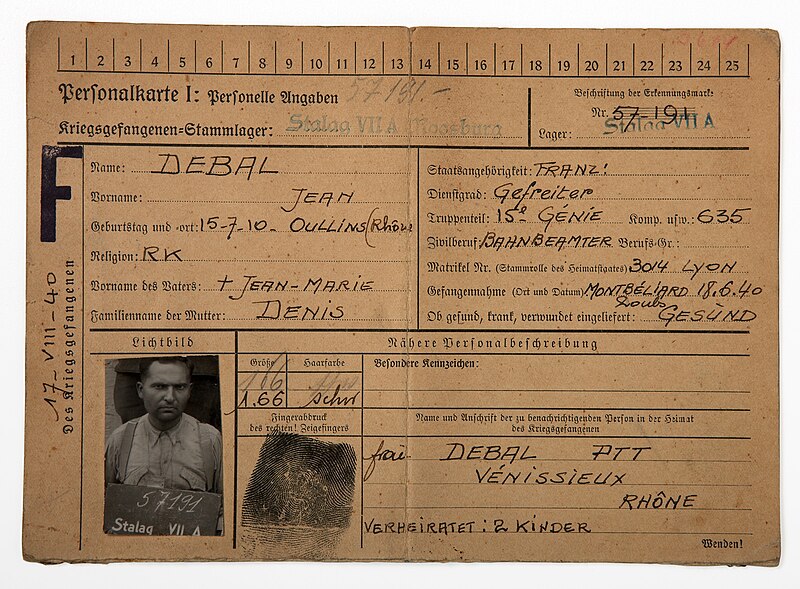 1 2 3 4 5 6 7 8 9 10 11 12 13 14 15 16 17 18 19 20 21 22 23 24 25
Personalkarte I: Personelle Angaben
57191-
Kriegsgefangenen-Stammlager: Stalag VII A Moosburg
Beschriftung der Erkennungsmarke
Nr. 57-191
Lager: Stalag VII A
F
17-VIII-40
Des Kriegsgefangenen
Name: DEBAL
Vorname: JEAN
Geburtstag und -ort: 15-7-10- OULLINS (Rhône
Religion: RK
Vorname des Vaters: + JEAN-MARIE
Familienname der Mutter: DENIS
Staatsangehörigkeit: FRANZ!
Dienstgrad: Gefreiter
Truppenteil: 15e GÉNIE Komp. usw.: 635
Zivilberuf: BAHNBEAMTER Berufs-Gr.:
Matrikel Nr. (Stammrolle des Heimatstaates) 3014 LYON
Gefangennahme (Ort und Datum) MONTBÉLIARD 18.6.40
Doubs
Ob gesund, krank, verwundet eingeliefert: GESUND
Lichtbild
57191
Stalag VII A
Nähere Personalbeschreibung
Größe Haarfarbe
166
1.66 schw
Fingerabdruck
des rechten! Zeigefingers
Besondere Kennzeichen:
Name und Anschrift der zu benachrichtigenden Person in der Heimat
des Kriegsgefangenen
frau DEBAL PTT
VÉNISSIEUX
RHÔNE
VERHEIRATET: 2 KINDER
Wenden!